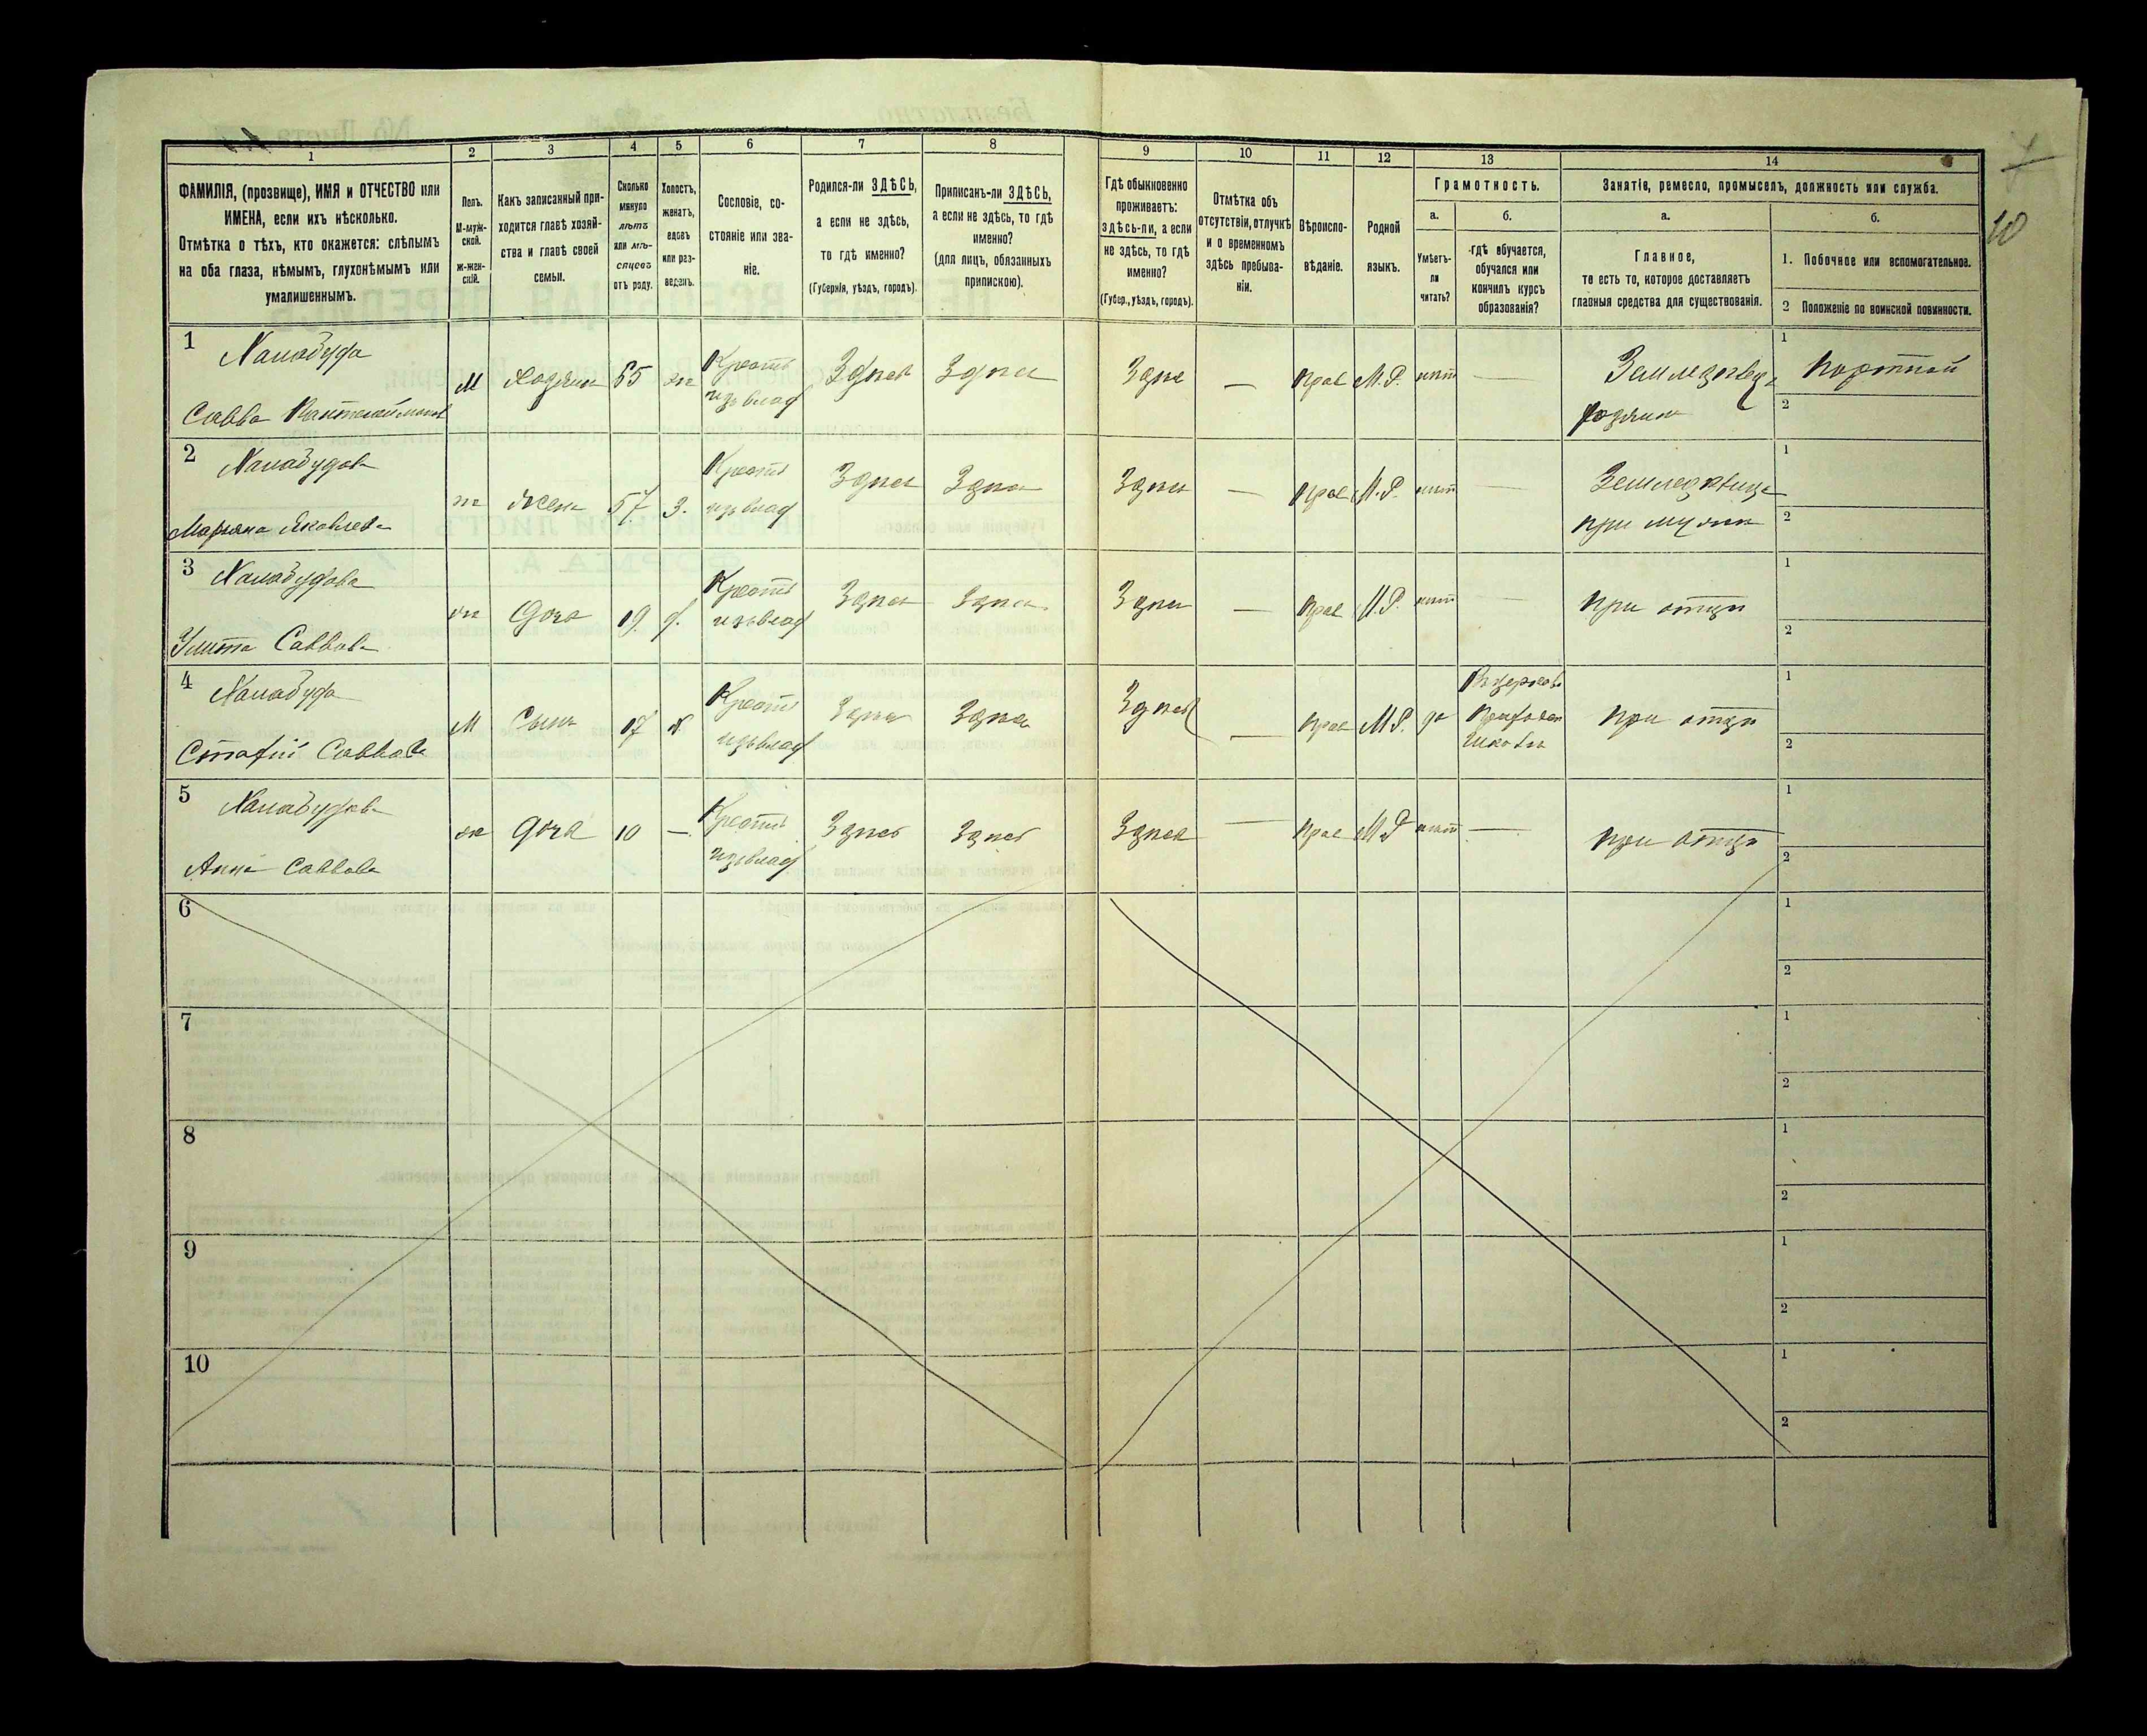 1 2 3 4 5 6 7 8 9 10 11 12 13 14
ФАМИЛІЯ, (прозвище), ИМЯ и ОТЧЕСТВО или
ИМЕНА, если ихъ нѣсколько.
Отмѣтка о тѣхъ, кто окажется: слѣпымъ
на оба глаза, нѣмымъ, глухонѣмымъ или
умалишеннымъ.
Полъ.
М-муж-
ской.
ж-жен-
скій.
Какъ записанный при-
ходится главѣ хозяй-
ства и главѣ своей
семьи.
Сколько
минуло
лѣтъ
или мѣ-
сяцевъ
отъ роду.
Холостъ,
женатъ,
вдовъ
или раз-
веденъ.
Сословіе, со-
стояніе или зва-
ніе.
Родился-ли ЗДѢСЬ,
а если не здѣсь,
то гдѣ именно?
(Губернія, уѣздъ, городъ).
Приписанъ-ли ЗДѢСЬ,
а если не здѣсь, то гдѣ
именно?
(для лицъ, обязанныхъ
припискою).
Гдѣ обыкновенно
проживаетъ:
здѣсь-ли, а если
не здѣсь, то гдѣ
именно?
(Губер., уѣздъ, городъ).
Отмѣтка объ
отсутствіи, отлучкѣ
и о временномъ
здѣсь пребыва-
ніи.
Вѣроиспо-
вѣданіе.
Родной
языкъ.
Грамотность.
а.
Умѣетъ-
ли
читать?
б.
гдѣ обучается,
обучался или
кончилъ курсъ
образованія?
Занятіе, ремесло, промыселъ, должность или служба.
а.
Главное,
то есть то, которое доставляетъ
главныя средства для существованія.
б.
1. Побочное или вспомогательное.
2 Положеніе по воинской повинности.
10
1
Савва
М Хозяинъ 65 же Крестъ
изъ влад
Здѣсь Здѣсь Здѣсь — прав М.Р. нѣтъ —
хозяинъ
1 Портной
2
2
Марьяна Яковлева
же жена 57 з. Крестъ
изъ влад
Здѣсь Здѣсь Здѣсь — прав М.Р. нѣтъ —
при мужѣ
1
2
3
Улита Саввова
же дочь 19 д. Крестъ
изъ влад
Здѣсь Здѣсь Здѣсь — прав М.Р. нѣтъ —
при отцѣ
1
2
4
Саввовъ
М Сынъ 17 х Крест
изъ влад
Здѣсь Здѣсь Здѣсь — прав М.Р. да
школѣ
при отцѣ
1
2
5
Анна Саввова
же дочь 10 — Крестъ
изъ влад
Здѣсь Здѣсь Здѣсь — прав М.Р. нѣтъ —
при отцѣ
1
2
6
1
2
7
1
2
8
1
2
9
1
2
10
1
2